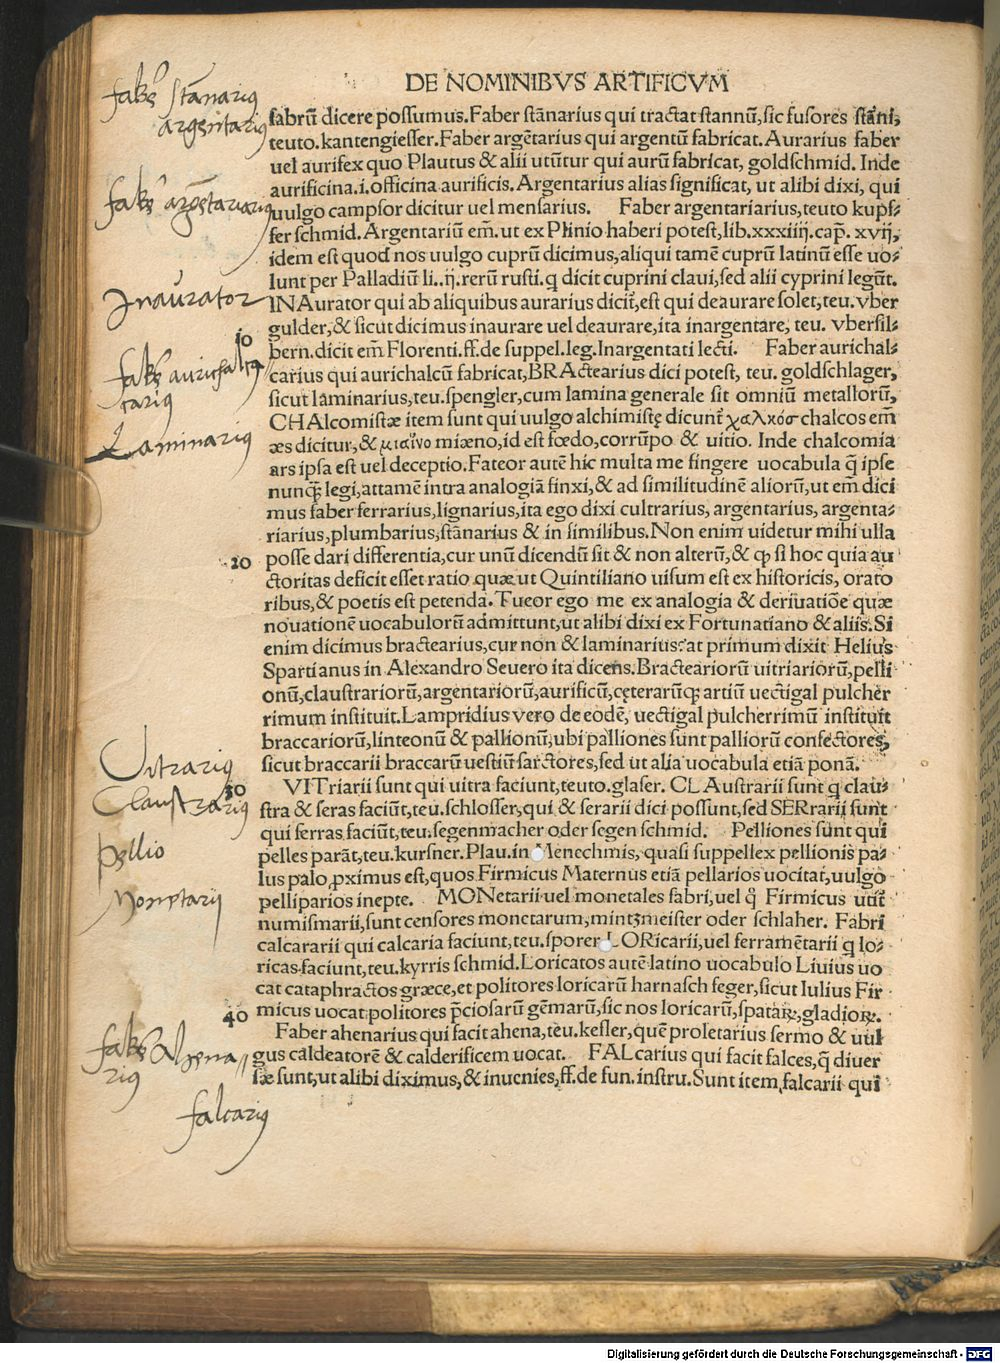 DE NOMINIBVS ARTIFICVM
fabrũ dicere possumus. Faber stãnarius qui tractat stannũ, sic fusores stãni,
teuto. kantengiesser. Faber argẽtarius qui argentũ fabricat. Aurarius faber
uel aurifex quo Plautus & alii utũtur qui aurũ fabricat, goldschmid. Inde
aurificina .i. officina aurificis. Argentarius alias significat, ut alibi dixi, qui
uulgo campsor dicitur uel mensarius. Faber argentariarius, teuto kupf-
fer schmid. Argentariũ em̃. ut ex Plinio haberi potest, lib. xxxiiij. cap̃. xvij,
idem est quod nos uulgo cuprũ dicimus, aliqui tamẽ cuprũ latinũ esse uo-
lunt per Palladiũ li.. ij. rerũ rusti. q̃ dicit cuprini claui, sed alii cyprini legũt.
INAurator qui ab aliquibus aurarius dicit̃, est qui deaurare solet, teu. vber
10
gulder, & sicut dicimus inaurare uel deaurare, ita inargentare, teu. vbersil-
bern. dicit em̃ Florenti. ff. de suppel. leg. Inargentati lecti. Faber aurichal-
carius qui aurichalcũ fabricat, BRActearius dici potest, teu. goldschlager,
sicut laminarius, teu. spengler, cum lamina generale sit omniũ metallorũ,
CHAlcomistæ item sunt qui uulgo alchimistę dicunt̃ χαλκόσ chalcos em̃
æs dicitur, & μιαίνο miæno, id est fœdo, corrũpo & uitio. Inde chalcomia
ars ipsa est uel deceptio. Fateor autẽ hic multa me fingere uocabula q̃ ipse
nunq̃ legi, attamẽ intra analogiã finxi, & ad similitudinẽ aliorũ, ut em̃ dici
mus faber ferrarius, lignarius, ita ego dixi cultrarius, argentarius, argenta-
riarius, plumbarius, stãnarius & in similibus. Non enim uidetur mihi ulla
20 posse dari differentia, cur unũ dicendũ sit & non alterũ, & ꝙ si hoc quia au
ctoritas deficit esset ratio quæ ut Quintiliano uisum est ex historicis, orato
ribus, & poetis est petenda. Tueor ego me ex analogia & deriuatiõe quæ
nouationẽ uocabulorũ admittunt, ut alibi dixi ex Fortunatiano & aliis. Si
enim dicimus bractearius, cur non & laminarius: at primum dixit Helius
Spartianus in Alexandro Seuero ita dicens. Bracteariorũ uitriariorũ, pelli
onũ, claustrariorũ, argentariorũ, aurificũ, cęterarũq̃ artiũ uectigal pulcher
rimum instituit. Lampridius vero de eodẽ, uectigal pulcherrimũ instituit
braccariorũ, linteonũ & pallionũ, ubi palliones sunt palliorũ confectores,
sicut braccarii braccarũ uestiũ sartores, sed ut alia uocabula etiã ponã.
VITriarii sunt qui uitra faciunt, teuto. glaser. CLAustrarii sunt q̃ clau-
30
stra & seras faciũt, teu. schlosser, qui & serarii dici possunt, sed SERrarij sunt
qui serras faciũt, teu. segenmacher oder segen schmid. Pelliones sunt qui
pelles parãt, teu. kursner. Plau. in Menechmis, quasi suppellex pellionis pa-
lus palo, pximus est, quos Firmicus Maternus etiã pellarios uocitat, uulgo
pelliparios inepte. MONetarii uel monetales fabri, uel q̃ Firmicus utit̃
numismarii, sunt censores monetarum, mintzmeister oder schlaher. Fabri
calcararii qui calcaria faciunt, teu. sporer. LORicarii, uel ferramẽtarii q̃ lo-
ricas faciunt, teu. kyrris schmid. Loricatos autẽ latino uocabulo Liuius uo
cat cataphractos græce, et politores loricarũ harnasch feger, sicut Iulius Fir
micus uocat politores p̃ciosarũ gẽmarũ, sic nos loricarũ, spataꝝ, gladioꝝ.
40
Faber ahenarius qui facit ahena, teu. kesler, quẽ proletarius sermo & uul
gus caldeatorẽ & calderificem uocat. FALcarius qui facit falces, q̃ diuer
sæ sunt, ut alibi diximus, & inuenies, ff. de fun. instru. Sunt item falcarii qui
fabr stãnariꝯ
argentariꝯ
fabr argẽtariariꝯ
Inaurator
fabr aurichalca
rariꝯ
Laminariꝯ
Vitrariꝯ
Claustrariꝯ
pellio
Monetarij
fabr Ahena
riꝯ
falcariꝯ
Digitalisierung gefördert durch die Deutsche Forschungsgemeinschaft - DFG